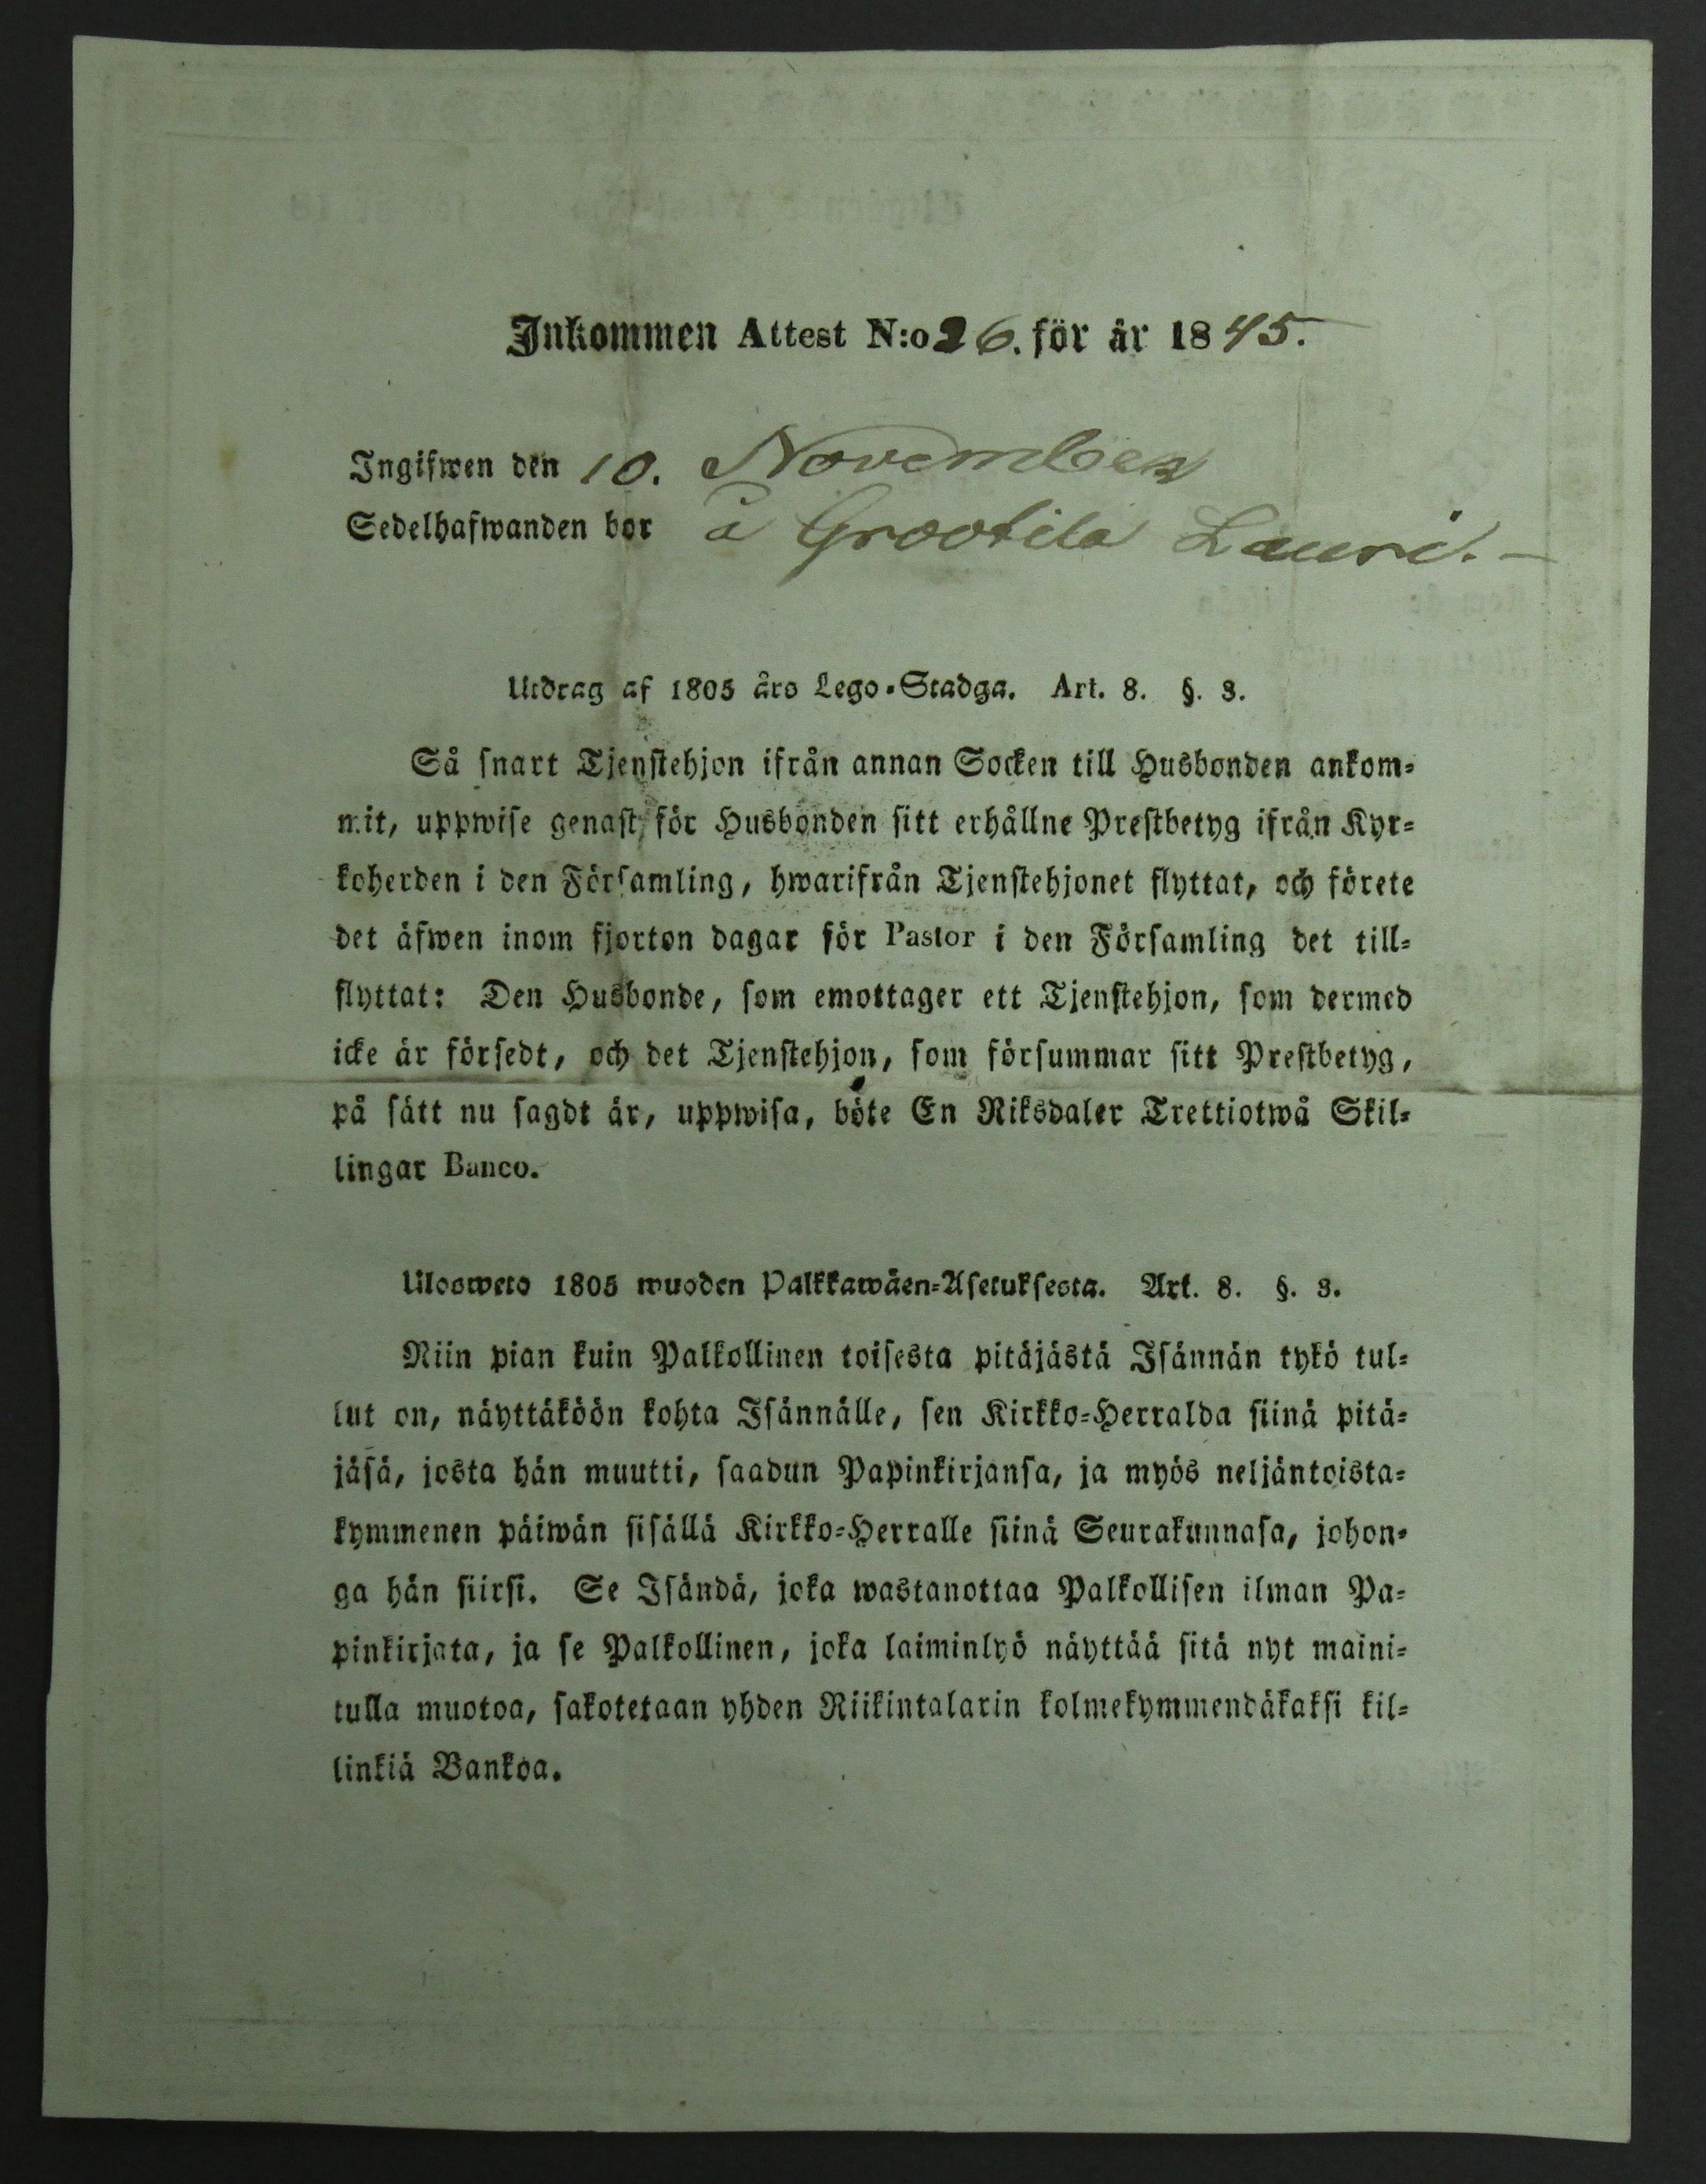 Inkommen Attest N:o 26. för år 1845.
Ingifwen den 10. November
Sedelhafwanden bor å Grootila Lauri. –
Utdrag af 1805 års Lego-Stadga. Art. 8. §. 3.
Så snart Tjenstehjon ifrån annan Socken till Husbonden ankom-
mit, uppwise genast för Husbonden sitt erhållne Prestbetyg ifrån Kyr-
koherden i den Församling, hwarifrån Tjenstehjonet flyttat, och förete
det äfwen inom fjorton dagar för Pastor i den Församling det till-
flyttat: Den Husbonde, som emottager ett Tjenstehjon, som dermed
icke är försedt, och det Tjenstehjon, som försummar sitt Prestbetyg,
på sätt nu sagdt är, uppwisa, böte En Riksdaler Trettiotwå Skil-
lingar Banco.
Ulosweto 1805 wuoden Palkkawäen-Asetuksesta. Art. 8. §. 3.
Niin pian kuin Palkollinen toisesta pitäjästä Isännän tykö tul-
lut on, näyttäköön kohta Isännälle, sen Kirkko-Herralda siinä pitä-
jäsä, josta hän muutti, saadun Papinkirjansa, ja myös neljäntoista-
kymmenen päiwän sisällä Kirkko-Herralle siinä Seurakunnasa, johon-
ga hän siirsi. Se Isändä, joka wastanottaa Palkollisen ilman Pa-
pinkirjata, ja se Palkollinen, joka laiminlyö näyttää sitä nyt maini-
tulla muotoa, sakotetaan yhden Riikintalarin kolmekymmendäkaksi kil-
linkiä Bankoa.